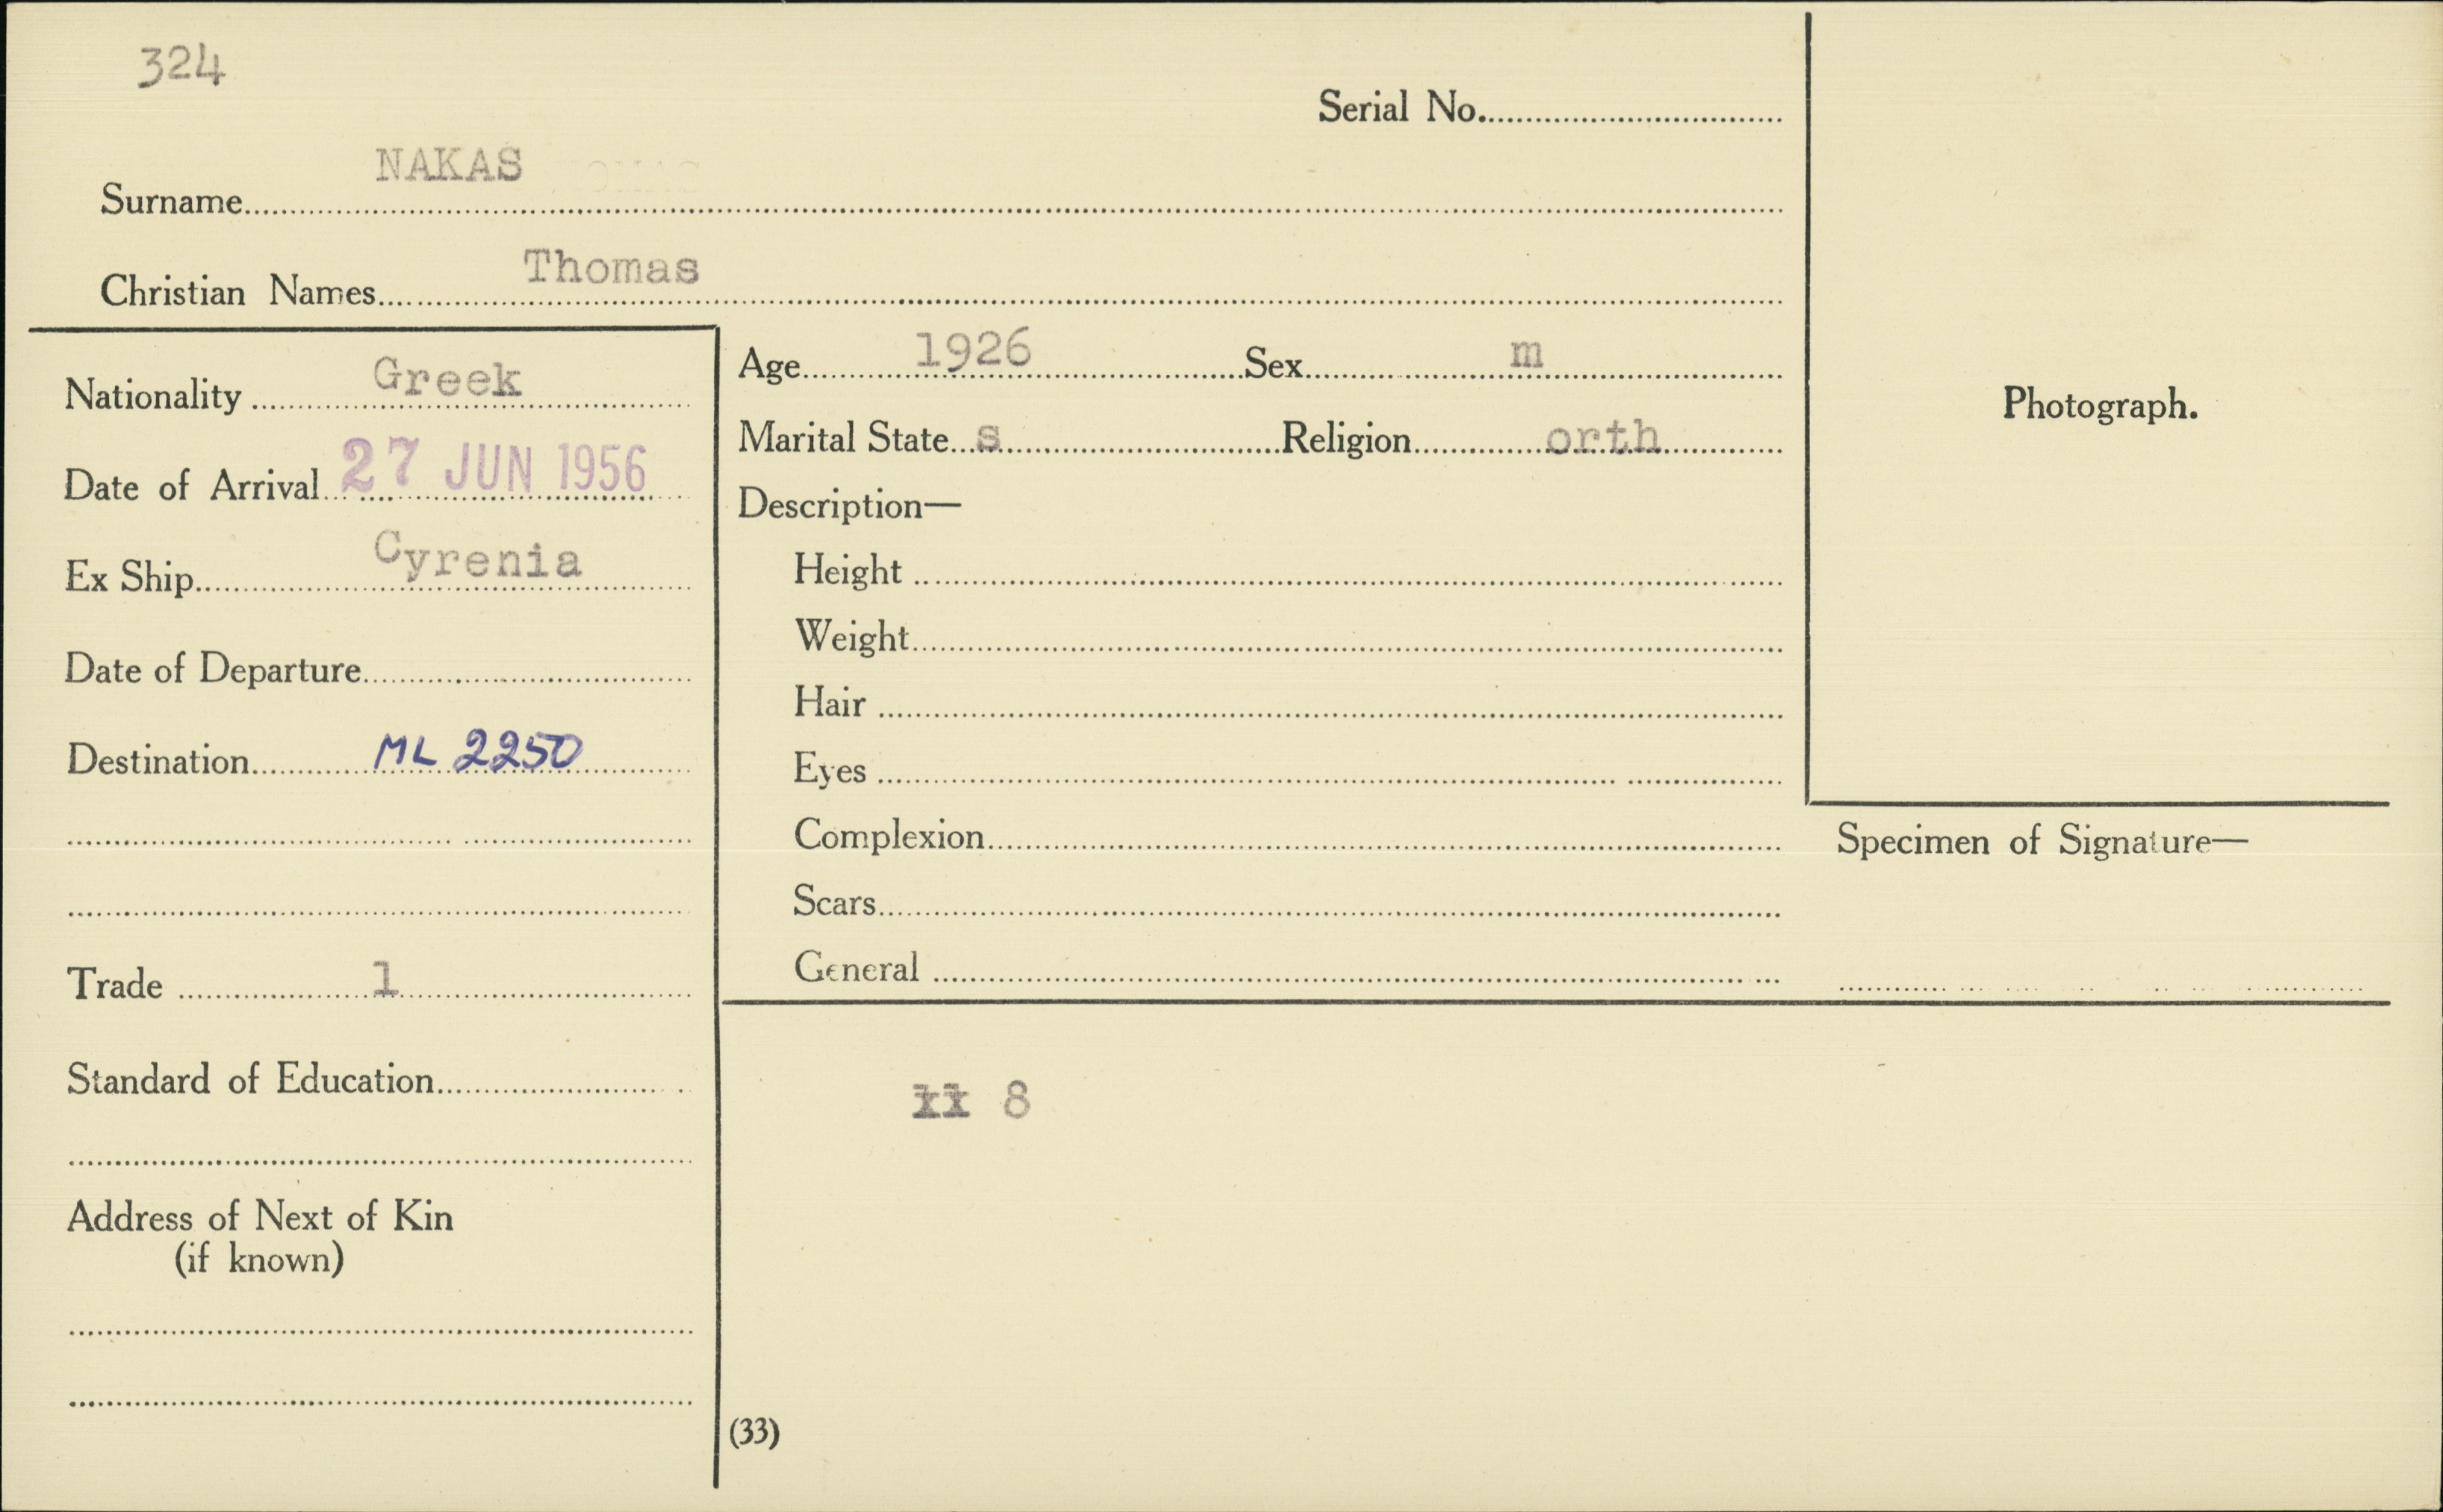 324
Serial No.
NAKAS
Surname
Thomas
Christian Names
Nationality Greek
Date of Arrival 27 JUN 1956
Ex Ship Cyrenia
Date of Departure
Destination ML 2250
Trade 1
Standard of Education
Address of Next of Kin
(if known)
Age 1926 Sex m
Marital State s Religion orth
Description—
Height
Weight
Hair
Eyes
Complexion
Scars
General
8
(33)
Photograph.
Specimen of Signature—